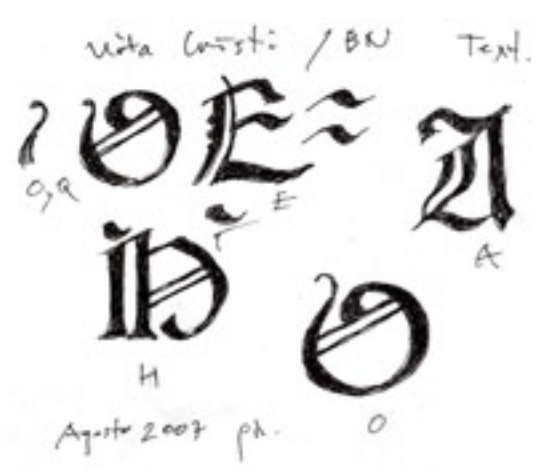 Vita Cristi / BN Text.
O, Q
O E A
E
A
H O
H
O
Agosto 2007 ph.